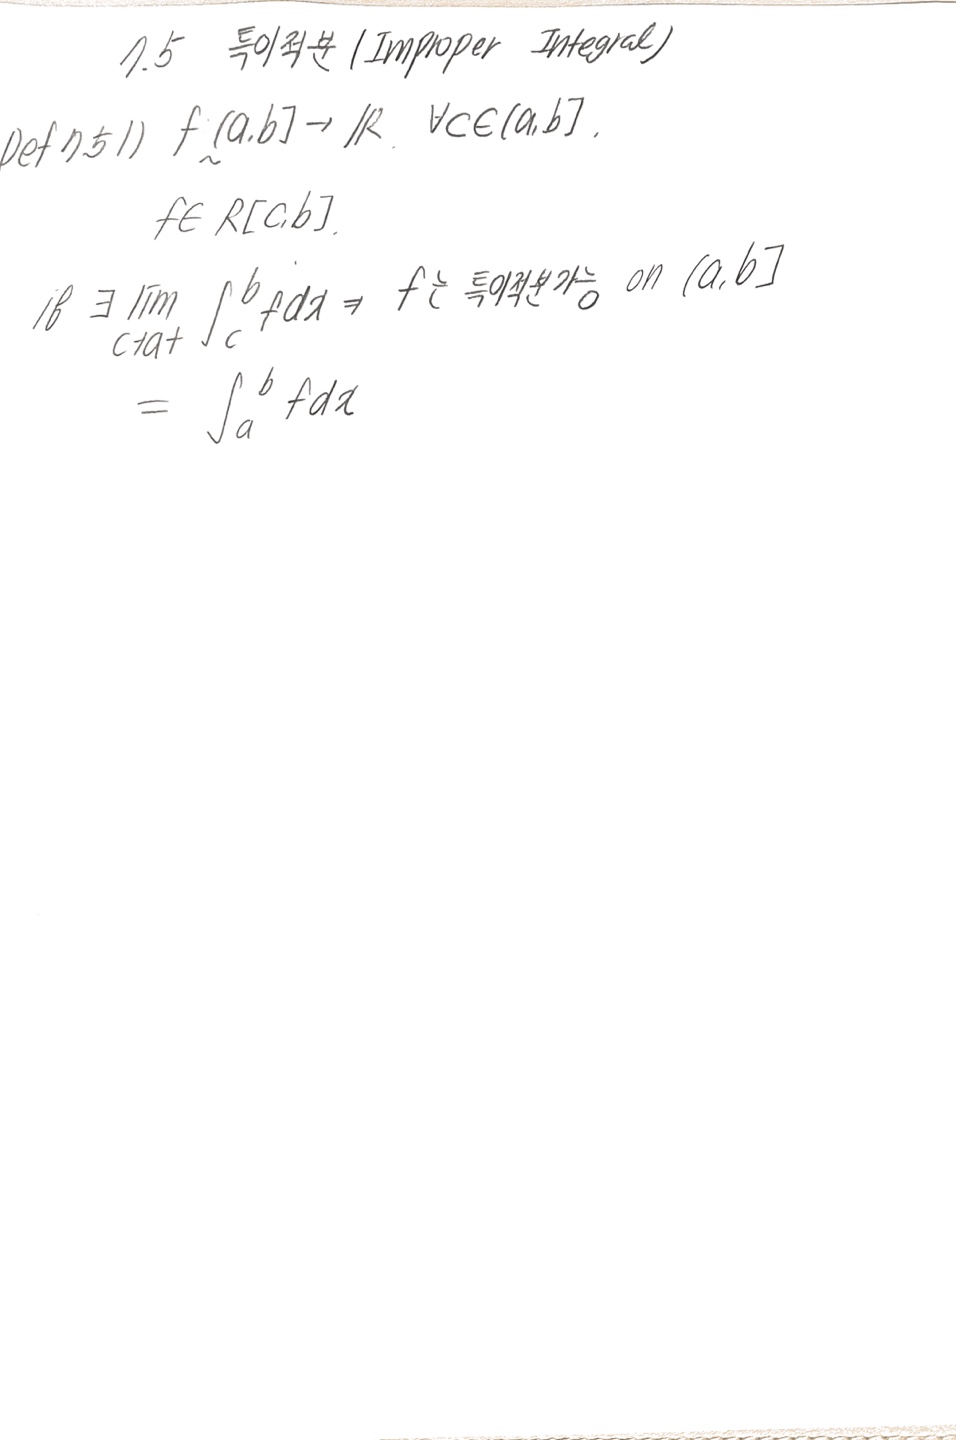 7.5 특이적분 (Improper Integral)
Def 7.5.1) f : (a,b] → ℝ. ∀c∈(a,b].
f∈ R[c,b].
if ∃ lim_{c→a+} ∫_c^b fdx ⇒ f는 특이적분가능 on (a,b]
= ∫_a^b fdx